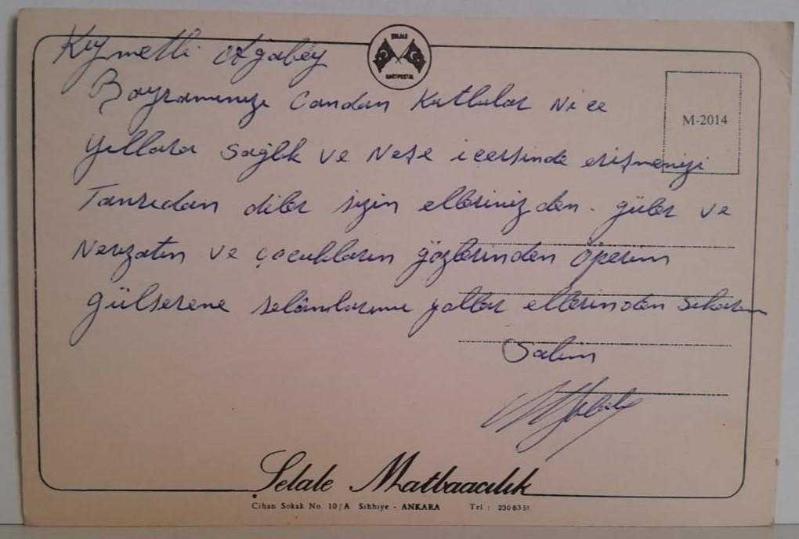 ŞELALE
KARTPOSTAL
Kıymetli Ağabey
Bayramınızı Candan Kutlular Nice
M-2014
yıllara sağlık ve Neşe içersinde erişmenizi
Tanrıdan diler sizin ellerinizden. güler ve
Nevzatın ve çocukların gözlerinden öperim
gülserene selâmlarımı yollar ellerinden sıkarım
Salim
Şelale Matbaacılık
Cihan Sokak No. 10/A Sıhhiye - ANKARA Tel : 230 63 51